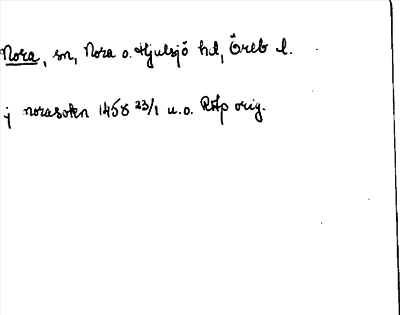 Nora, sn, Nora o. Hjulsjö hd, Öreb l.
j norasokn 1458 23/1 u.o. RAp orig.